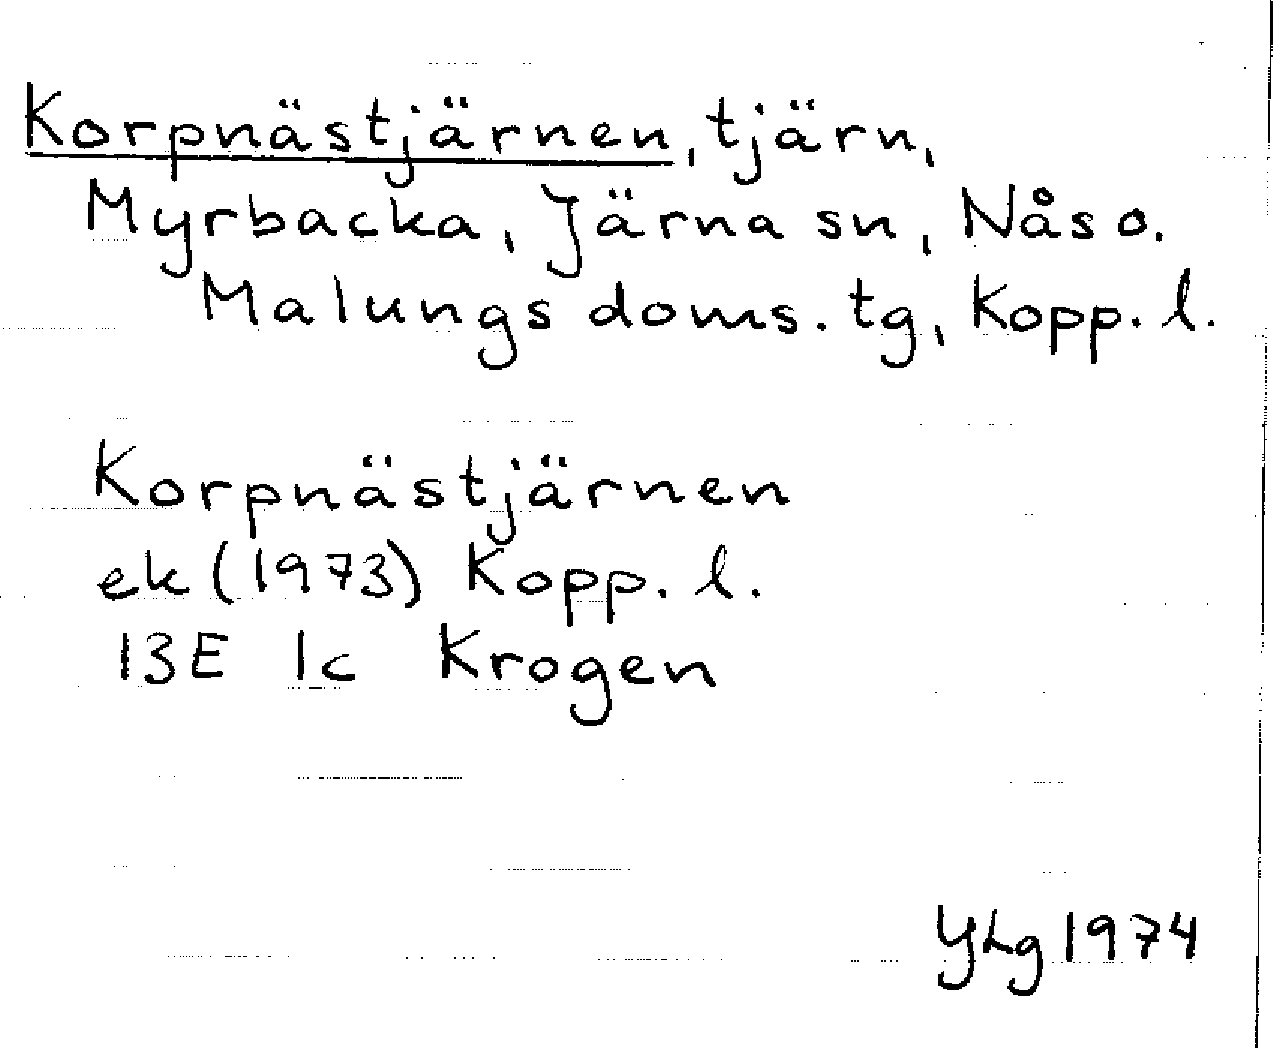 Korpnästjärnen, tjärn,
Myrbacka, Järna sn, Nås o.
Malungs doms. tg, Kopp. l.
Korpnästjärnen
ek (1973) Kopp. l.
13E 1c Krogen
YLg 1974